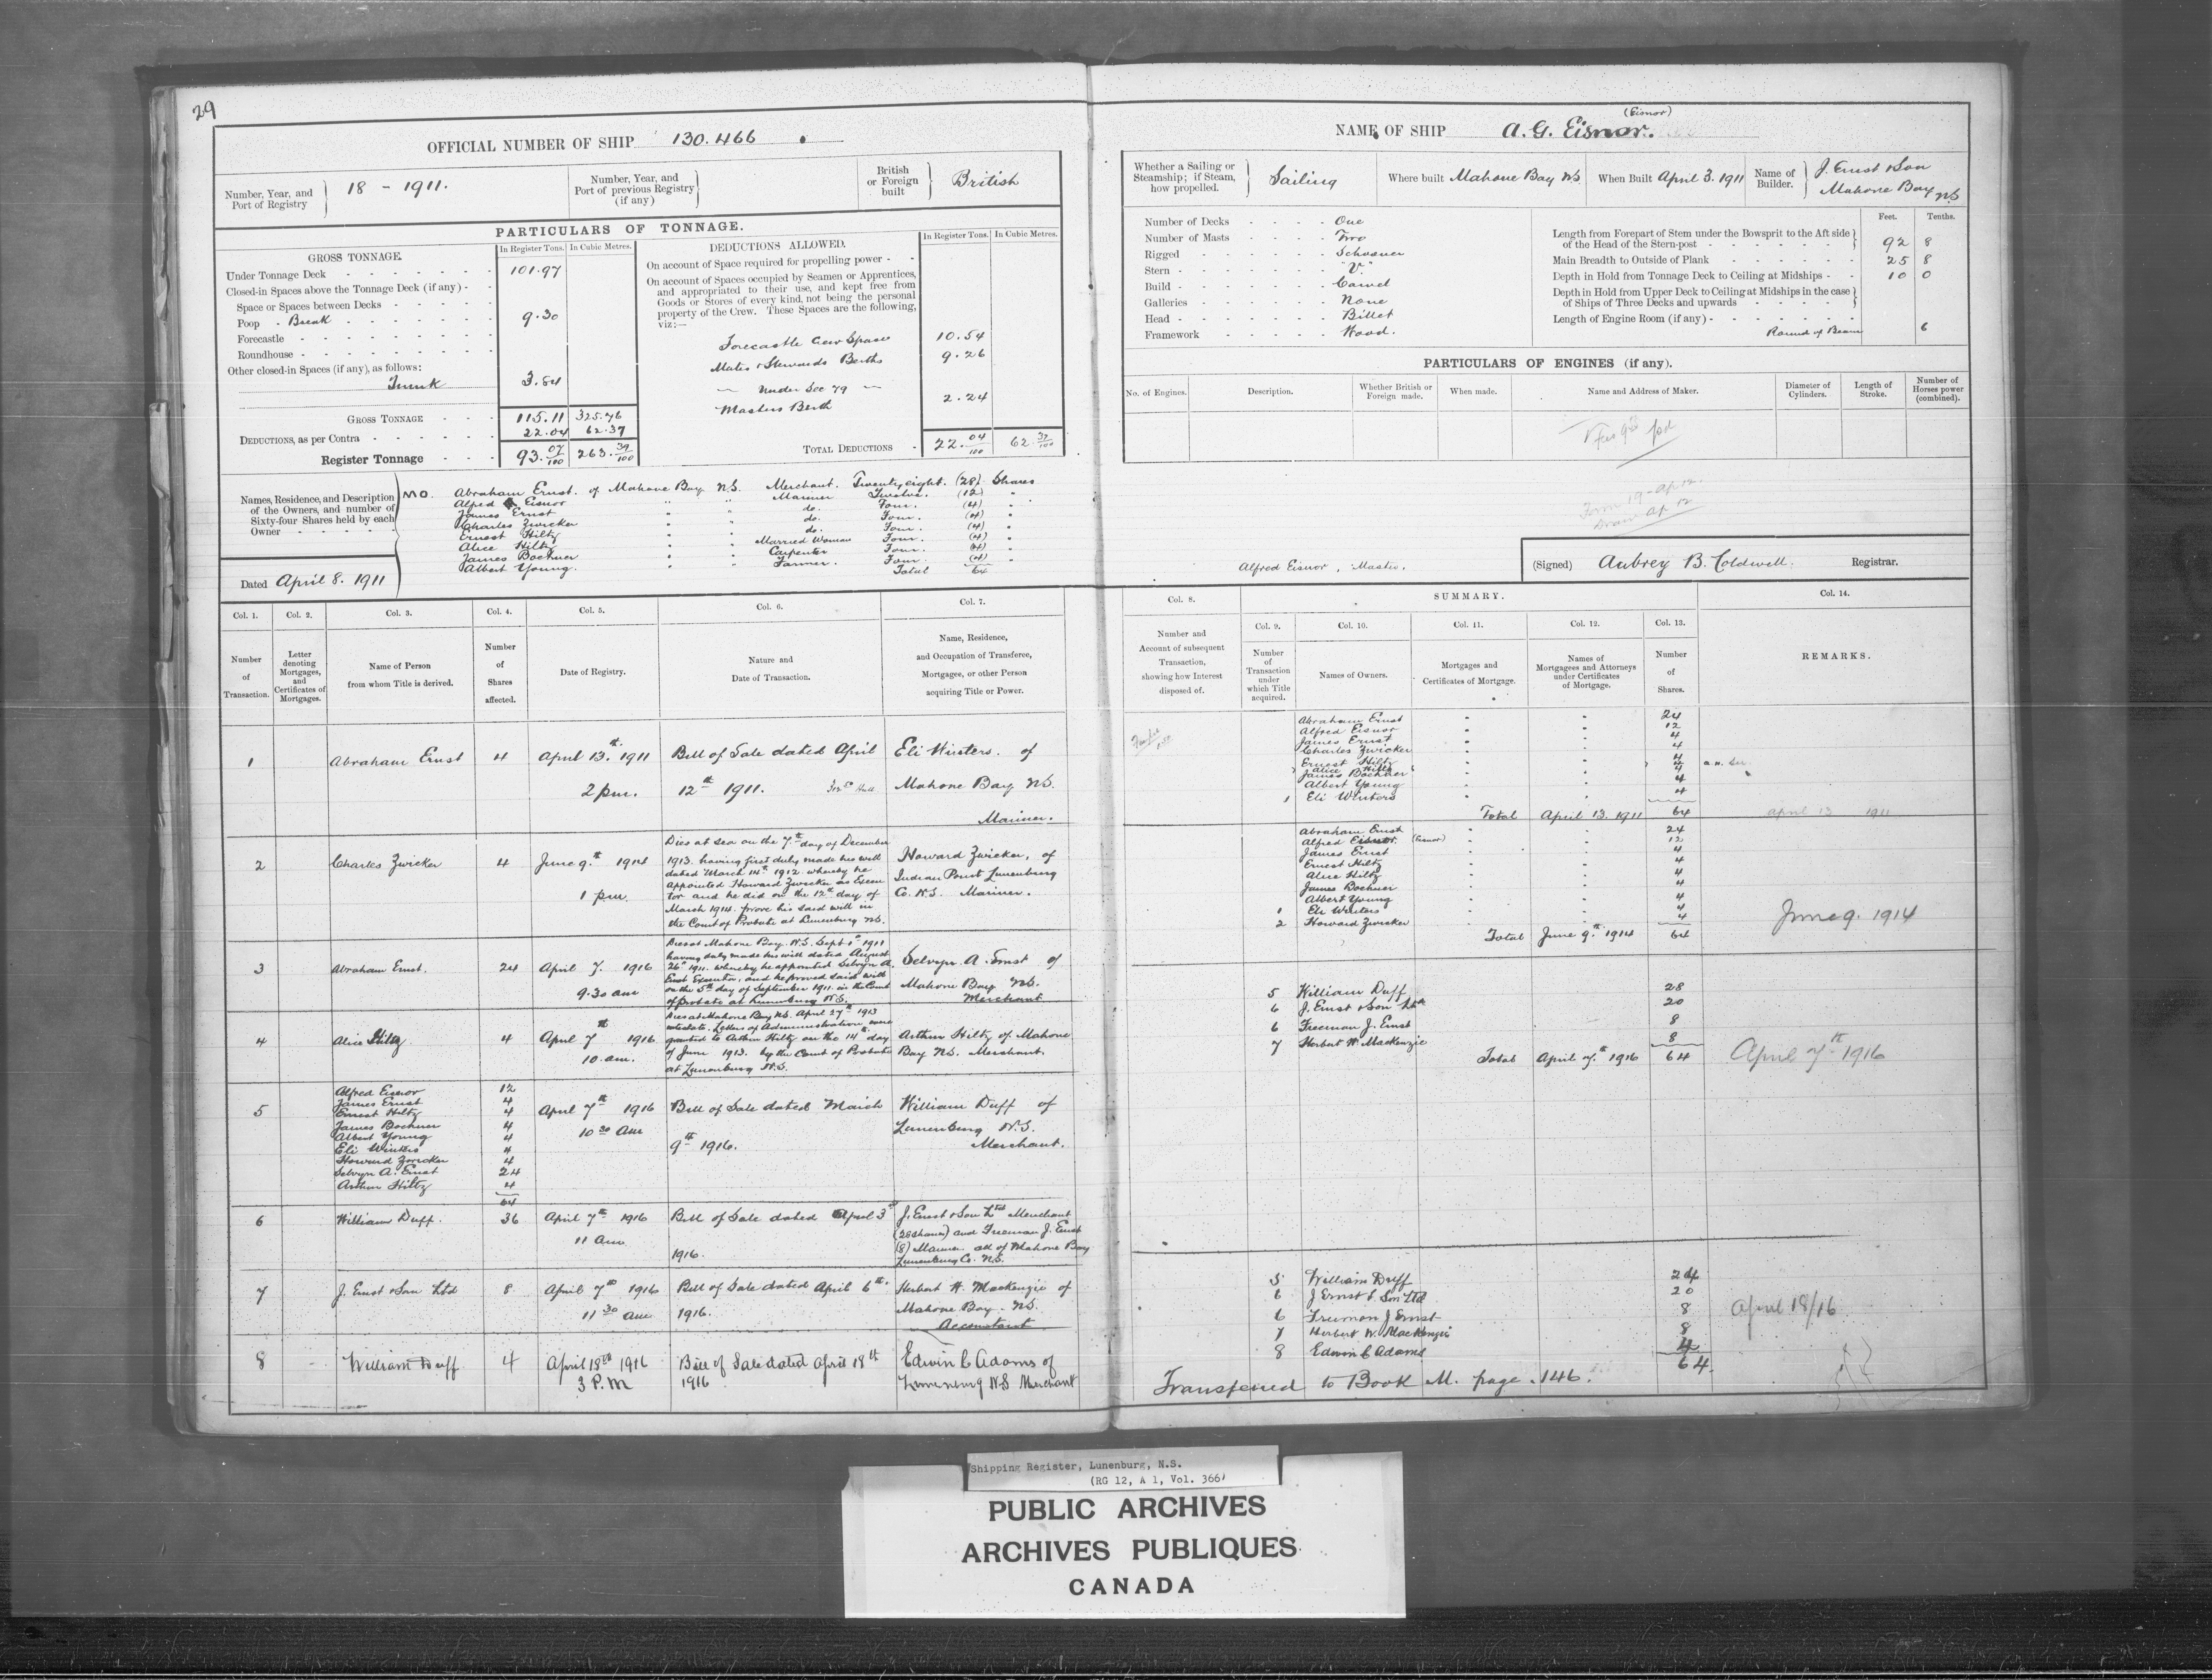 29
OFFICIAL NUMBER OF SHIP 130.466
Number, Year, and Port of Registry 18 - 1911.
Number, Year, and Port of previous Registry (if any)
British or Foreign built British
PARTICULARS OF TONNAGE.
GROSS TONNAGE.
In Register Tons. In Cubic Metres.
Under Tonnage Deck 101.97
Closed-in Spaces above the Tonnage Deck (if any)
Space or Spaces between Decks
Poop Break 9.30
Forecastle
Roundhouse
Other closed-in Spaces (if any), as follows:
Trunk 3.84
GROSS TONNAGE 115.11 325.76
DEDUCTIONS, as per Contra 22.04 62.37
Register Tonnage 93.07/100 263.39/100
DEDUCTIONS ALLOWED.
In Register Tons. In Cubic Metres.
On account of Space required for propelling power
On account of Spaces occupied by Seamen or Apprentices,
and appropriated to their use, and kept free from
Goods or Stores of every kind, not being the personal
property of the Crew. These Spaces are the following,
viz:—
Forecastle Crew Space 10.54
Mates & Stewards Berths 9.26
— Under Sec 79 —
Masters Berth 2.24
TOTAL DEDUCTIONS 22.04/100 62.37/100
Names, Residence, and Description
of the Owners, and number of
Sixty-four Shares held by each
Owner
MO. Abraham Ernst. of Mahone Bay N.S. Merchant. Twenty eight. (28) Shares
Alfred Eisnor " " Mariner Twelve. (12) "
James Ernst " " do. Four. (4) "
Charles Zwicker " " do. Four. (4) "
Ernest Hiltz " " do. Four. (4) "
Alice Hiltz " " Married Woman Four. (4) "
James Bochner " " Carpenter Four. (4) "
Albert Young. " " Farmer. Four. (4) "
Total 64
Dated April 8. 1911
Col. 1. Col. 2. Col. 3. Col. 4. Col. 5. Col. 6. Col. 7.
Number of Transaction.
Letter denoting Mortgages, and Certificates of Mortgages.
Name of Person from whom Title is derived.
Number of Shares affected.
Date of Registry.
Nature and Date of Transaction.
Name, Residence, and Occupation of Transferee, Mortgagee, or other Person acquiring Title or Power.
1 Abraham Ernst 4 April 13.th 1911 Bill of Sale dated April Eli Winters. of
2 pm. 12th 1911. Mahone Bay N.S.
Mariner.
Dies at sea on the 7th day of December
2 Charles Zwicker 4 June 9.th 1914 1913. having first duly made his will Howard Zwicker, of
dated March 14th 1912 whereby he Indian Point Lunenburg
appointed Howard Zwicker as Execu
1 pm. tor and he did on the 12th day of Co. N.S. Mariner.
March 1914. prove his said will in
the Court of Probate at Lunenburg N.S.
Dies at Mahone Bay. N.S. Sept 1st 1911
having duly made his will dated August
3 Abraham Ernst. 24 April 7. 1916 26th 1911. whereby he appointed Selvyn A. Selvyn A. Ernst of
Ernst Executor, and he proved said will
9.30 am on the 5th day of September 1911. in the Court Mahone Bay N.S.
of Probate at Lunenburg N.S. Merchant
Dies at Mahone Bay N.S. April 27th 1913
intestate. Letters of Administration were
4 Alice Hiltz 4 April 7th 1916 granted to Arthur Hiltz on the 14th day Arthur Hiltz of Mahone
10 am. of June 1913. by the Court of Probate Bay N.S. Merchant.
at Lunenburg N.S.
Alfred Eisnor 12
James Ernst 4
5 Ernest Hiltz 4 April 7th 1916 Bill of Sale dated March William Duff of
James Bochner 4 10 30 am Lunenburg N.S.
Albert Young 4 9th 1916. Merchant.
Eli Winters 4
Howard Zwicker 4
Selvyn A. Ernst 24
Arthur Hiltz 4
64
6 William Duff. 36 April 7th 1916 Bill of Sale dated April 3rd J. Ernst & Son Ltd Merchant
11 am (28 shares) and Freeman J. Ernst
1916. (8) Mariner all of Mahone Bay
Lunenburg Co. N.S.
7 J. Ernst & Son Ltd 8 April 7th 1916 Bill of Sale dated April 6th. Herbert W. Mackenzie of
11 30 am 1916. Mahone Bay. N.S.
Accountant
8 - William Duff 4 April 18th 1916 Bill of Sale dated April 18th Edwin C Adams of
3 P.M 1916 Lunenburg N.S Merchant
(Eisnor)
NAME OF SHIP A. G. Eisnor.
Whether a Sailing or Steamship; if Steam, how propelled. Sailing
Where built Mahone Bay N.S.
When Built April 3. 1911
Name of Builder. J. Ernst & Son
Mahone Bay N.S
Number of Decks One
Number of Masts Two
Rigged Schooner
Stern "V."
Build Carvel
Galleries None
Head Billet
Framework Wood.
Feet. Tenths.
Length from Forepart of Stem under the Bowsprit to the Aft side of the Head of the Stern-post 92 8
Main Breadth to Outside of Plank 25 8
Depth in Hold from Tonnage Deck to Ceiling at Midships 10 0
Depth in Hold from Upper Deck to Ceiling at Midships in the case of Ships of Three Decks and upwards
Length of Engine Room (if any)
Round of Beam 6
PARTICULARS OF ENGINES (if any).
No. of Engines. Description. Whether British or Foreign made. When made. Name and Address of Maker. Diameter of Cylinders. Length of Stroke. Number of Horses power (combined).
Alfred Eisnor, Master.
(Signed) Aubrey B. Coldwell. Registrar.
Col. 8. SUMMARY. Col. 14.
Col. 9. Col. 10. Col. 11. Col. 12. Col. 13.
Number and Account of subsequent Transaction, showing how Interest disposed of.
Number of Transaction under which Title acquired.
Names of Owners.
Mortgages and Certificates of Mortgage.
Names of Mortgagees and Attorneys under Certificates of Mortgage.
Number of Shares.
REMARKS.
Abraham Ernst " " 24
Alfred Eisnor " " 12
James Ernst " " 4
Charles Zwicker " " 4
Ernest Hiltz " " 4
Alice Hiltz " " 4
James Bochner " " 4
Albert Young " " 4
1 Eli Winters " " 4
Total April 13. 1911 64 April 13 1911
Abraham Ernst " 24
Alfred Eisnor. (Eisnor) " " 12
James Ernst " " 4
Ernest Hiltz " " 4
Alice Hiltz " " 4
James Bochner " " 4
Albert Young " " 4
1 Eli Winters " " 4
2 Howard Zwicker " " 4
Total June 9.th 1914 64 June 9. 1914
5 William Duff 28
6 J. Ernst & Son Ltd 20
6 Freeman J. Ernst 8
7 Herbert W. MacKenzie 8
Total April 7.th 1916 64 April 7th 1916
5 William Duff 24
6 J Ernst & Son Ltd 20
6 Freeman J Ernst 8 April 18/16
7 Herbert W. MacKenzie 8
8 Edwin C Adams 4
64.
Transferred to Book M. page 146.
Shipping Register, Lunenburg, N.S.
(RG 12, A 1, Vol. 366)
PUBLIC ARCHIVES
ARCHIVES PUBLIQUES
CANADA